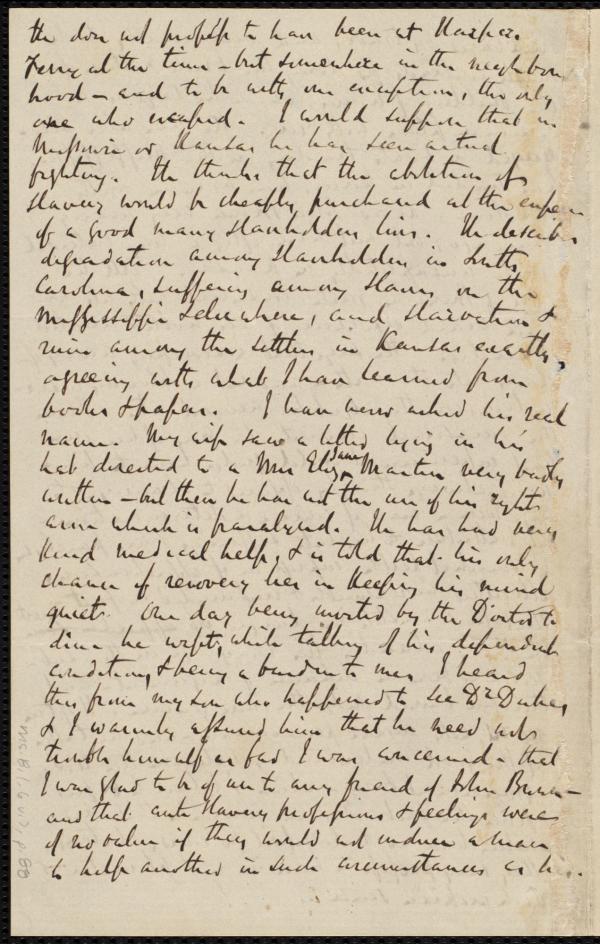 He does not profess to have been at Harpers
Ferry at the time – but somewhere in the neighbour
hood – and to be with one exception, the only
one who escaped. I would suppose that in
Missouri or Kansas he has seen actual
fighting. He thinks that the abolition of
slavery would be cheaply purchased at the expense
of a good many slaveholders lives. He describes
degradation among slaveholders in South
Carolina, suffering among slaves on the
Mississippi & elsewhere, and starvation &
ruin among the settlers in Kansas exactly
agreeing with what I have learned from
books & papers. I have never asked his real
name. My wife saw a letter lying in his
hat directed to a Mrs Eliza Jane Martin very badly
written – but then he has not the use of his right
arm which is paralysed. He has had very
kind medical help, & is told that his only
chance of recovery lies in keeping his mind
quiet. One day being invited by the Doctor to
dine he wept, while talking of his dependent
condition, & being a burden to me. I heard
this from my son who happened to see Dr
& I warmly assured him that he need not
trouble himself as far I was concerned – that
I was glad to be of use to any friend of John Brown –
and that anti slavery professions & feelings were
of no value if they would not induce a man
to help another in such circumstances as his.
Ms.B.1.6 p.88